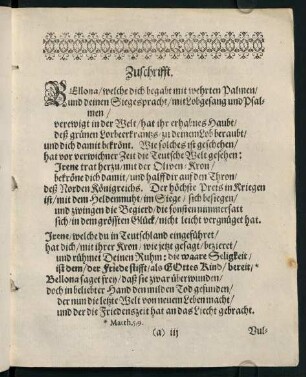 Zuschrifft.
BEllona/welche dich begabt mit wehrten Palmen/
und deinen Siegespracht/mit Lobgesang und Psal-
men/
verewigt in der Welt/hat ihr erhabnes Haubt/
deß grünen Lorbeerkrantzs/zu deinem Lob beraubt/
und dich damit bekrönt. Wie solches ist geschehen/
hat vor verwichner Zeit die Teutsche Welt gesehen:
Irene trat herzu/mit der Oliven-Kron/
bekröne dich damit/und halff dir auf den Thron
deß Norden Königreichs. Der höchste Preis in Kriegen
ist/mit dem Heldenmuht/im Siege/sich besiegen/
und zwingen die Begierd/die sonsten nimmersatt
sich/in dem grössten Glück/nicht leicht vergnüget hat.
Irene/welche du in Teutschland eingeführet/
hat dich/mit ihrer Kron/wie jetzt gesagt/bezieret/
und rühmet Deinen Ruhm: die waare Seligkeit/
ist dem/der Friede stifft/als GOttes Kind/bereit/*
Bellona saget frey/daß sie zwar überwunden/
doch in beliebter Hand den milden Tod gefunden/
der nun die letzte Welt von neuem Leben macht/
und der die Friedenszeit hat an das Liecht gebracht.
* Matth. 5. 9.
(a) iij
Vul-